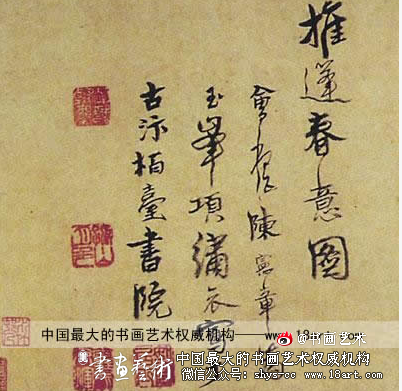 推篷春意圖
會稽陳憲章
玉峯項繡衣寫
古汴栢臺書院
中国最大的书画艺术权威机构
@书画艺术
書畫藝術
中国最大的书画艺术权威机构
微信公众号：shysrcc www.18art.com